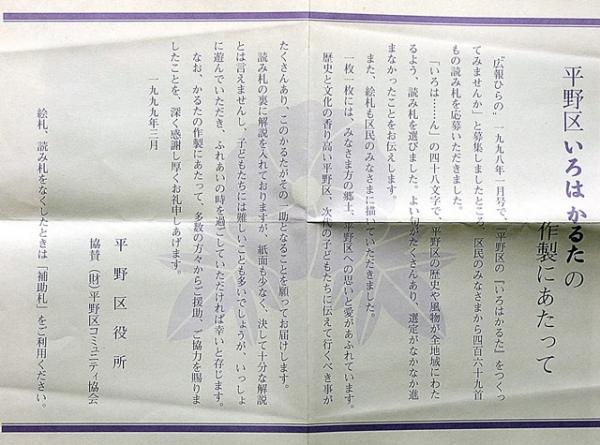 平野区いろはかるたの
作製にあたって
"広報ひらの"一九九八年一月号で、「平野区の『いろはかるた』をつくっ
てみませんか」と募集しましたところ、区民のみなさまから四百六十九首
もの読み札を応募いただきました。
「いろは……ん」の四十八文字で、平野区の歴史や風物が全地域にわた
るよう、読み札を選びました。よい句がたくさんあり、選定がなかなか進
まなかったことをお伝えします。
また、絵札も区民のみなさまに描いていただきました。
一枚一枚には、みなさま方の郷土、平野区への思いと愛があふれています。
歴史と文化の香り高い平野区、次代の子どもたちに伝えて行くべき事が
たくさんあり、このかるたがその一助となることを願ってお届けします。
読み札の裏に解説を入れておりますが、紙面も少なく、決して十分な解説
とは言えませんし、子どもたちには難しいことも多いでしょうが、いっしょ
に遊んでいただき、ふれあいの時を過ごしていただければ幸いと存じます。
なお、かるたの作製にあたって、多数の方々からご援助、ご協力を賜りま
したことを、深く感謝し厚くお礼申しあげます。
一九九九年三月
平野区役所
協賛 (財)平野区コミュニティ協会
絵札、読み札をなくしたときは「補助札」をご利用ください。